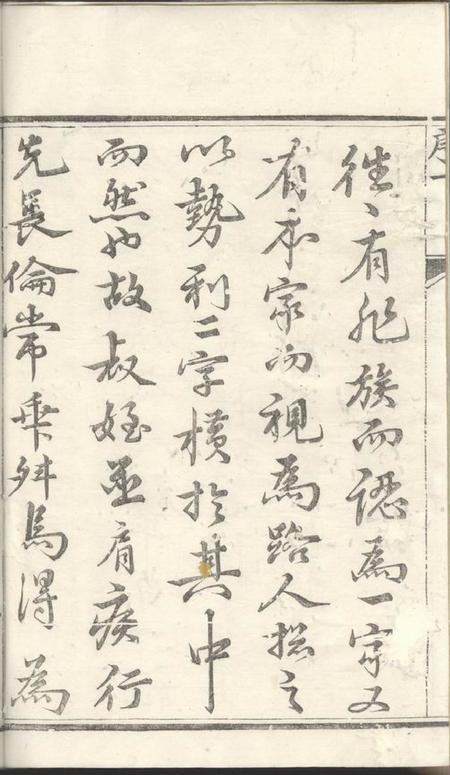 序一
徃〻有非族而認為一家又
有本家而視為路人揔之
以勢利二字橫於其中
而然也故叔姪並肩疾行
先長倫常乖舛焉得為